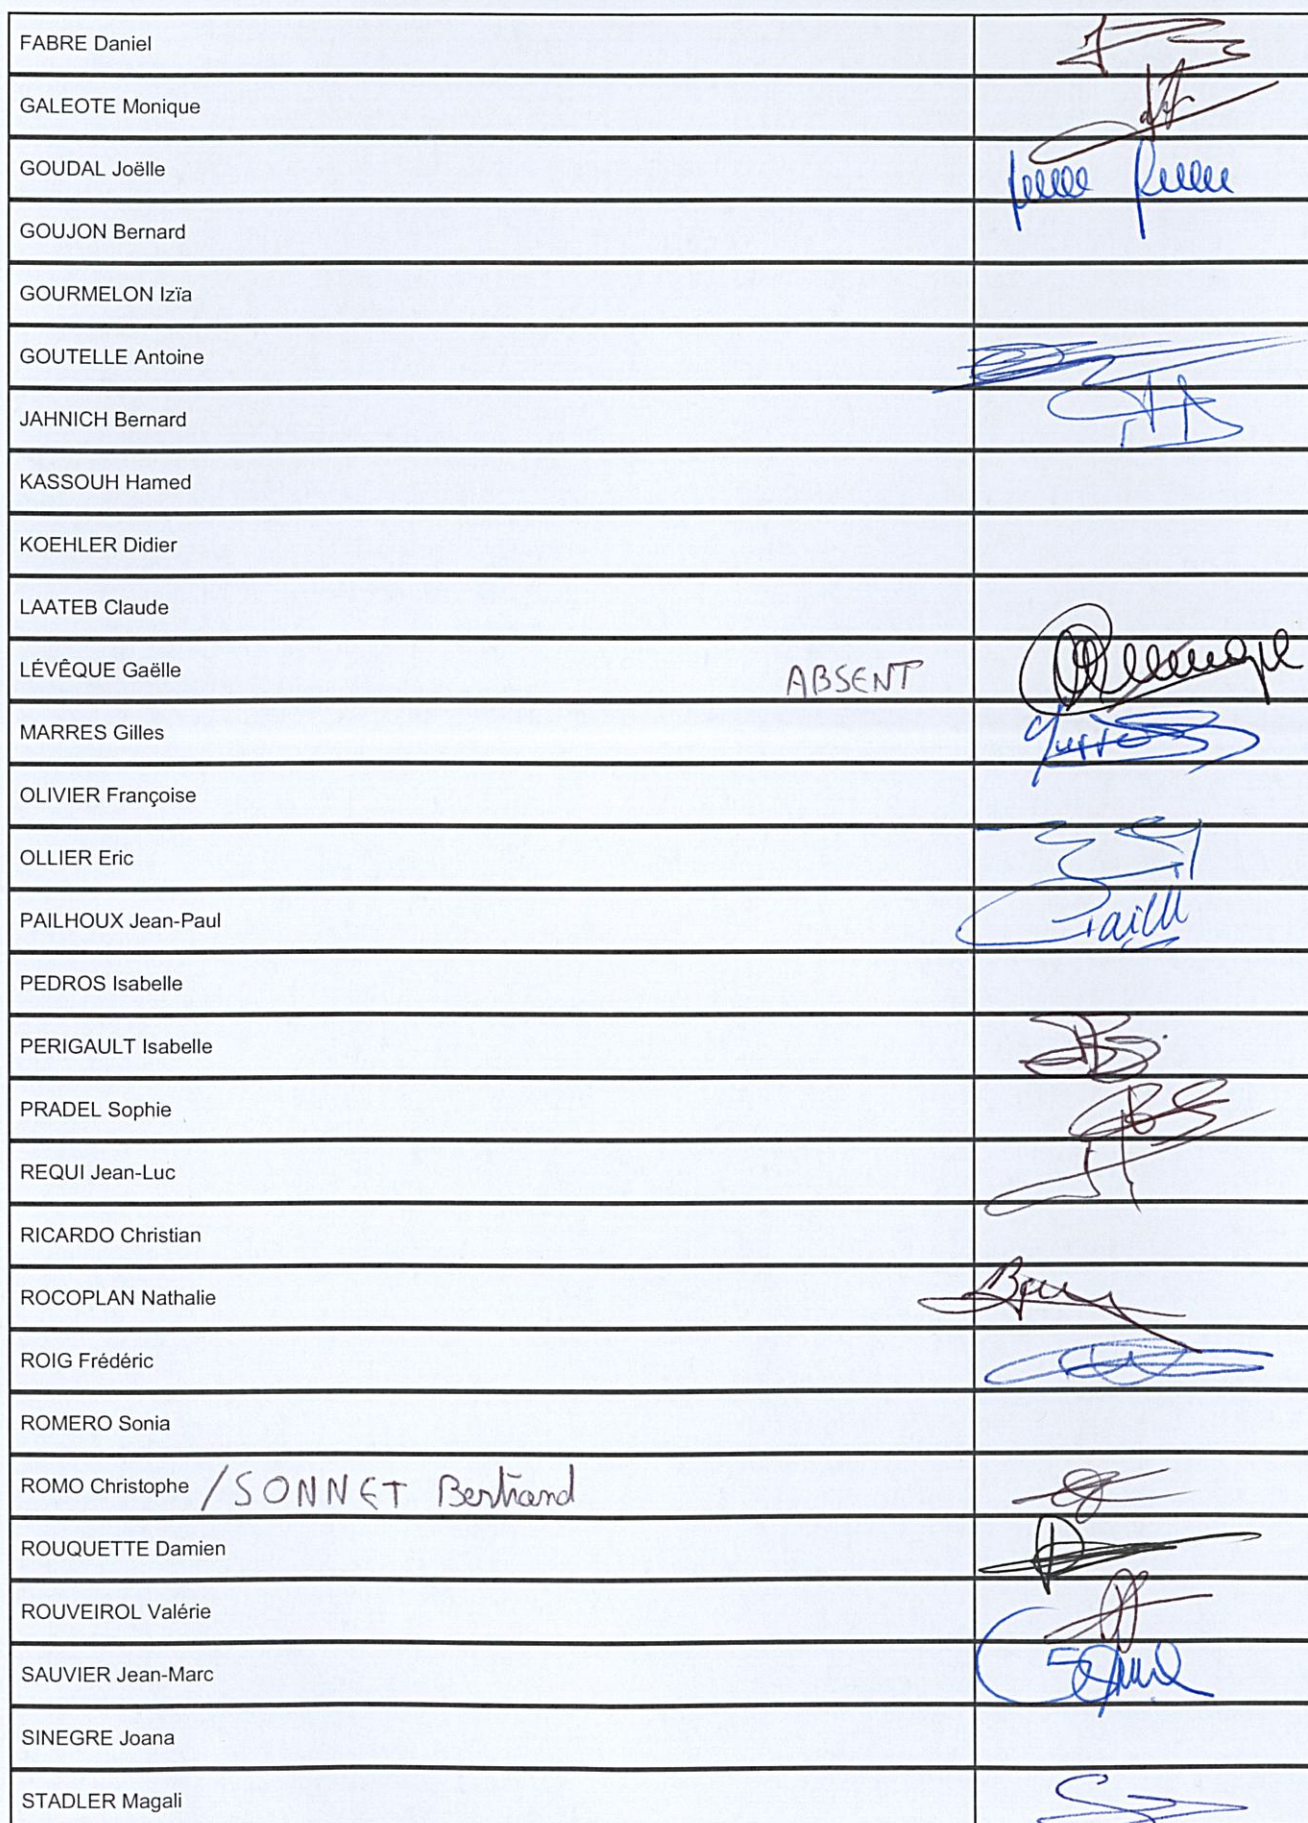 FABRE Daniel
GALEOTE Monique
GOUDAL Joëlle
GOUJON Bernard
GOURMELON Izïa
GOUTELLE Antoine
JAHNICH Bernard
KASSOUH Hamed
KOEHLER Didier
LAATEB Claude
LÉVÊQUE Gaëlle ABSENT
MARRES Gilles
OLIVIER Françoise
OLLIER Eric
PAILHOUX Jean-Paul
PEDROS Isabelle
PERIGAULT Isabelle
PRADEL Sophie
REQUI Jean-Luc
RICARDO Christian
ROCOPLAN Nathalie
ROIG Frédéric
ROMERO Sonia
ROMO Christophe /SONNET Bertrand
ROUQUETTE Damien
ROUVEIROL Valérie
SAUVIER Jean-Marc
SINEGRE Joana
STADLER Magali